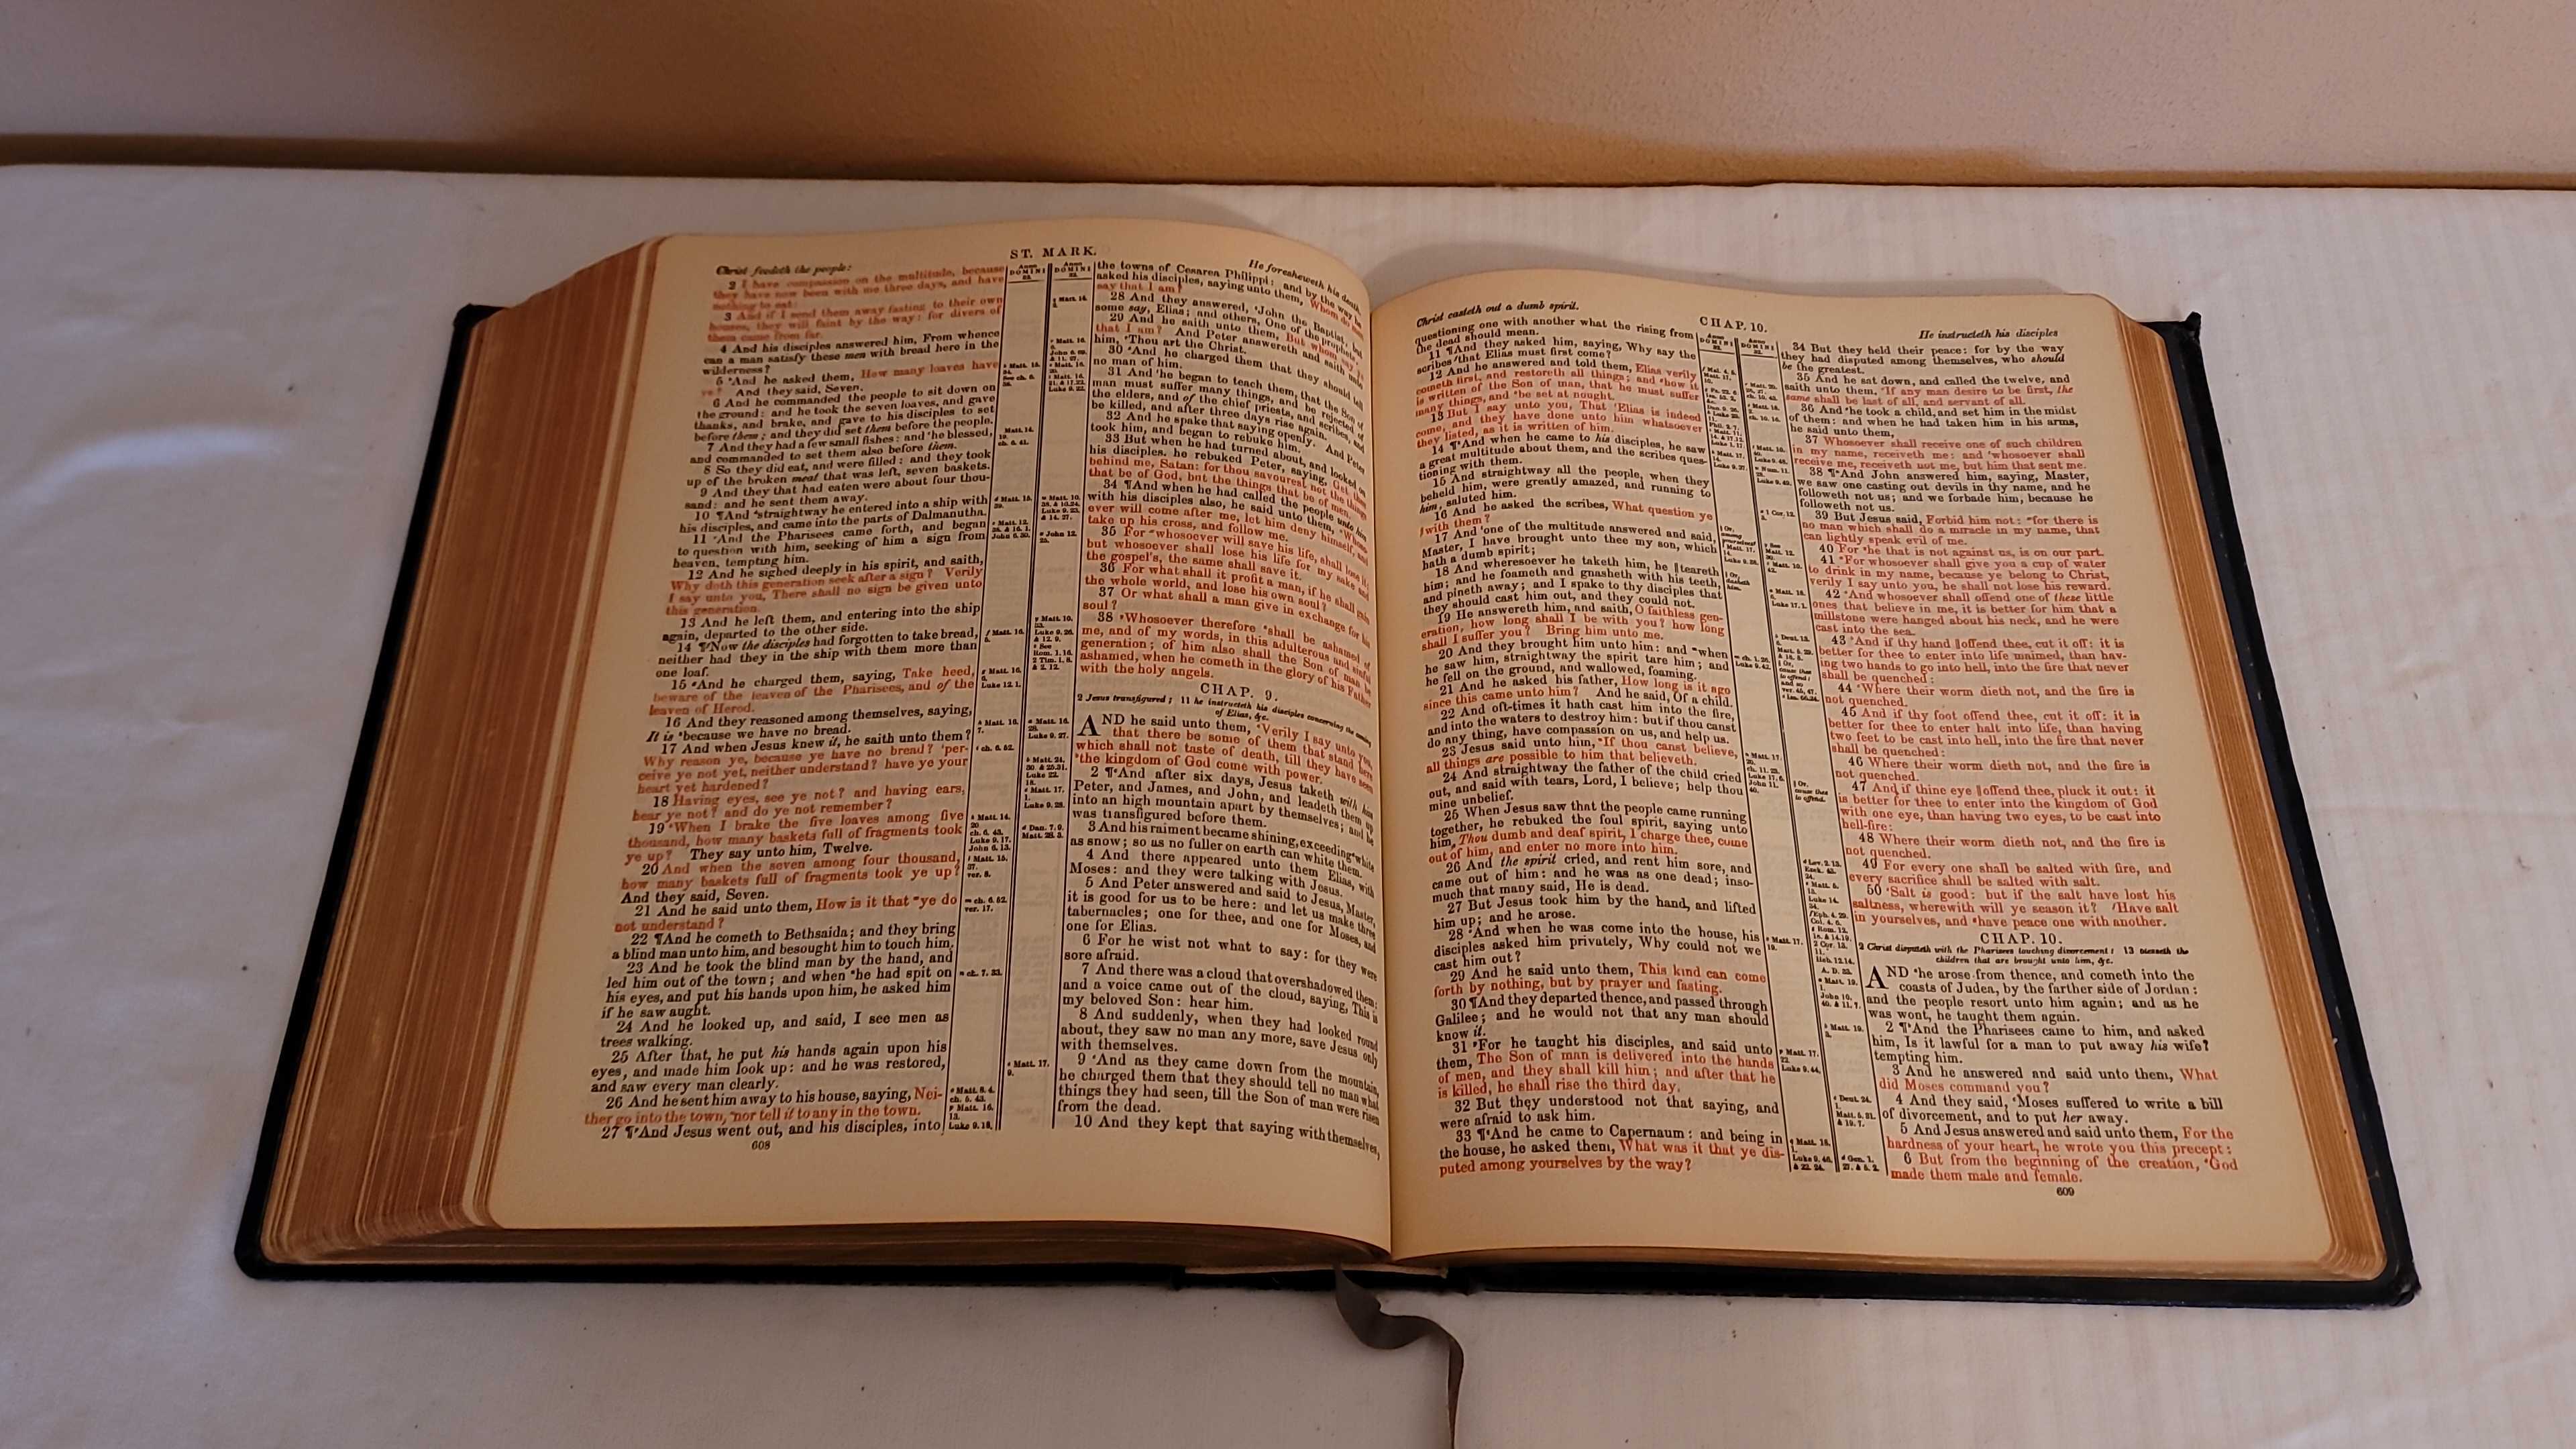 ST. MARK.
Christ feedeth the people:
2 I have compassion on the multitude, because
they have now been with me three days, and have
nothing to eat:
3 And if I send them away fasting to their own
houses, they will faint by the way: for divers of
them came from far.
4 And his disciples answered him, From whence
can a man satisfy these men with bread here in the
wilderness?
5 And he asked them, How many loaves have
ye? And they said, Seven.
6 And he commanded the people to sit down on
the ground: and he took the seven loaves, and gave
thanks, and brake, and gave to his disciples to set
before them; and they did set them before the people.
7 And they had a few small fishes: and he blessed,
and commanded to set them also before them.
8 So they did eat, and were filled: and they took
up of the broken meat that was left, seven baskets.
9 And they that had eaten were about four thou-
sand: and he sent them away.
10 ¶And straightway he entered into a ship with
his disciples, and came into the parts of Dalmanutha.
11 And the Pharisees came forth, and began
to question with him, seeking of him a sign from
heaven, tempting him.
12 And he sighed deeply in his spirit, and saith,
Why doth this generation seek after a sign? Verily
I say unto you, There shall no sign be given unto
this generation.
13 And he left them, and entering into the ship
again, departed to the other side.
14 ¶Now the disciples had forgotten to take bread,
neither had they in the ship with them more than
one loaf.
15 And he charged them, saying, Take heed,
beware of the leaven of the Pharisees, and of the
leaven of Herod.
16 And they reasoned among themselves, saying,
It is because we have no bread.
17 And when Jesus knew it, he saith unto them?
Why reason ye, because ye have no bread? per-
ceive ye not yet, neither understand? have ye your
heart yet hardened?
18 Having eyes, see ye not? and having ears,
hear ye not? and do ye not remember?
19 When I brake the five loaves among five
thousand, how many baskets full of fragments took
ye up? They say unto him, Twelve.
20 And when the seven among four thousand,
how many baskets full of fragments took ye up?
And they said, Seven.
21 And he said unto them, How is it that ye do
not understand?
22 ¶And he cometh to Bethsaida; and they bring
a blind man unto him, and besought him to touch him.
23 And he took the blind man by the hand, and
led him out of the town; and when he had spit on
his eyes, and put his hands upon him, he asked him
if he saw aught.
24 And he looked up, and said, I see men as
trees walking.
25 After that, he put his hands again upon his
eyes, and made him look up: and he was restored,
and saw every man clearly.
26 And he sent him away to his house, saying, Nei-
ther go into the town, nor tell it to any in the town.
27 ¶And Jesus went out, and his disciples, into
608
He foresheweth his death
the towns of Cesarea Philippi: and by the way he
asked his disciples, saying unto them, Whom do men
say that I am?
28 And they answered, John the Baptist: but
some say, Elias; and others, One of the prophets.
29 And he saith unto them, But whom say ye
that I am? And Peter answereth and saith unto
him, Thou art the Christ.
30 And he charged them that they should tell
no man of him.
31 And he began to teach them, that the Son of
man must suffer many things, and be rejected of
the elders, and of the chief priests, and scribes, and
be killed, and after three days rise again.
32 And he spake that saying openly. And Peter
took him, and began to rebuke him.
33 But when he had turned about, and looked on
his disciples, he rebuked Peter, saying, Get thee
behind me, Satan: for thou savourest not the things
that be of God, but the things that be of men.
34 ¶And when he had called the people unto him
with his disciples also, he said unto them, Whoso-
ever will come after me, let him deny himself, and
take up his cross, and follow me.
35 For whosoever will save his life, shall lose it;
but whosoever shall lose his life for my sake and
the gospel's, the same shall save it.
36 For what shall it profit a man, if he shall gain
the whole world, and lose his own soul?
37 Or what shall a man give in exchange for his
soul?
38 Whosoever therefore shall be ashamed of
me, and of my words, in this adulterous and sinful
generation; of him also shall the Son of man be
ashamed, when he cometh in the glory of his Father
with the holy angels.
CHAP. 9.
2 Jesus transfigured; 11 he instructeth his disciples concerning the coming
of Elias, &c.
AND he said unto them, Verily I say unto you,
that there be some of them that stand here
which shall not taste of death, till they have seen
the kingdom of God come with power.
2 ¶And after six days, Jesus taketh with him
Peter, and James, and John, and leadeth them up
into an high mountain apart by themselves; and he
was transfigured before them.
3 And his raiment became shining, exceeding white
as snow; so as no fuller on earth can white them.
4 And there appeared unto them Elias, with
Moses: and they were talking with Jesus.
5 And Peter answered and said to Jesus, Master,
it is good for us to be here: and let us make three
tabernacles; one for thee, and one for Moses, and
one for Elias.
6 For he wist not what to say: for they were
sore afraid.
7 And there was a cloud that overshadowed them:
and a voice came out of the cloud, saying, This is
my beloved Son: hear him.
8 And suddenly, when they had looked round
about, they saw no man any more, save Jesus only
with themselves.
9 And as they came down from the mountain,
he charged them that they should tell no man what
things they had seen, till the Son of man were risen
from the dead.
10 And they kept that saying with themselves,
CHAP. 10.
Christ casteth out a dumb spirit.
questioning one with another what the rising from
the dead should mean.
11 ¶And they asked him, saying, Why say the
scribes that Elias must first come?
12 And he answered and told them, Elias verily
cometh first, and restoreth all things; and how it
is written of the Son of man, that he must suffer
many things, and be set at nought.
13 But I say unto you, That Elias is indeed
come, and they have done unto him whatsoever
they listed, as it is written of him.
14 ¶And when he came to his disciples, he saw
a great multitude about them, and the scribes ques-
tioning with them.
15 And straightway all the people, when they
beheld him, were greatly amazed, and running to
him, saluted him.
16 And he asked the scribes, What question ye
with them?
17 And one of the multitude answered and said,
Master, I have brought unto thee my son, which
hath a dumb spirit;
18 And wheresoever he taketh him, he teareth
him; and he foameth and gnasheth with his teeth,
and pineth away; and I spake to thy disciples that
they should cast him out, and they could not.
19 He answereth him, and saith, O faithless gen-
eration, how long shall I be with you? how long
shall I suffer you? Bring him unto me.
20 And they brought him unto him: and when
he saw him, straightway the spirit tare him; and
he fell on the ground, and wallowed, foaming.
21 And he asked his father, How long is it ago
since this came unto him? And he said, Of a child.
22 And oft-times it hath cast him into the fire,
and into the waters to destroy him: but if thou canst
do any thing, have compassion on us, and help us.
23 Jesus said unto him, If thou canst believe,
all things are possible to him that believeth.
24 And straightway the father of the child cried
out, and said with tears, Lord, I believe; help thou
mine unbelief.
25 When Jesus saw that the people came running
together, he rebuked the foul spirit, saying unto
him, Thou dumb and deaf spirit, I charge thee, come
out of him, and enter no more into him.
26 And the spirit cried, and rent him sore, and
came out of him: and he was as one dead; inso-
much that many said, He is dead.
27 But Jesus took him by the hand, and lifted
him up; and he arose.
28 And when he was come into the house, his
disciples asked him privately, Why could not we
cast him out?
29 And he said unto them, This kind can come
forth by nothing, but by prayer and fasting.
30 ¶And they departed thence, and passed through
Galilee; and he would not that any man should
know it.
31 For he taught his disciples, and said unto
them, The Son of man is delivered into the hands
of men, and they shall kill him; and after that he
is killed, he shall rise the third day.
32 But they understood not that saying, and
were afraid to ask him.
33 ¶And he came to Capernaum: and being in
the house, he asked them, What was it that ye dis-
puted among yourselves by the way?
He instructeth his disciples
34 But they held their peace: for by the way
they had disputed among themselves, who should
be the greatest.
35 And he sat down, and called the twelve, and
saith unto them, If any man desire to be first, the
same shall be last of all, and servant of all.
36 And he took a child, and set him in the midst
of them: and when he had taken him in his arms,
he said unto them,
37 Whosoever shall receive one of such children
in my name, receiveth me: and whosoever shall
receive me, receiveth not me, but him that sent me.
38 ¶And John answered him, saying, Master,
we saw one casting out devils in thy name, and he
followeth not us; and we forbade him, because he
followeth not us.
39 But Jesus said, Forbid him not: for there is
no man which shall do a miracle in my name, that
can lightly speak evil of me.
40 For he that is not against us, is on our part.
41 For whosoever shall give you a cup of water
to drink in my name, because ye belong to Christ,
verily I say unto you, he shall not lose his reward.
42 And whosoever shall offend one of these little
ones that believe in me, it is better for him that a
millstone were hanged about his neck, and he were
cast into the sea.
43 And if thy hand offend thee, cut it off: it is
better for thee to enter into life maimed, than hav-
ing two hands to go into hell, into the fire that never
shall be quenched:
44 Where their worm dieth not, and the fire is
not quenched.
45 And if thy foot offend thee, cut it off: it is
better for thee to enter halt into life, than having
two feet to be cast into hell, into the fire that never
shall be quenched:
46 Where their worm dieth not, and the fire is
not quenched.
47 And if thine eye offend thee, pluck it out: it
is better for thee to enter into the kingdom of God
with one eye, than having two eyes, to be cast into
hell-fire:
48 Where their worm dieth not, and the fire is
not quenched.
49 For every one shall be salted with fire, and
every sacrifice shall be salted with salt.
50 Salt is good: but if the salt have lost his
saltness, wherewith will ye season it? Have salt
in yourselves, and have peace one with another.
CHAP. 10.
2 Christ disputeth with the Pharisees touching divorcement: 13 blesseth the
children that are brought unto him, &c.
AND he arose from thence, and cometh into the
coasts of Judea, by the farther side of Jordan:
and the people resort unto him again; and as he
was wont, he taught them again.
2 ¶And the Pharisees came to him, and asked
him, Is it lawful for a man to put away his wife?
tempting him.
3 And he answered and said unto them, What
did Moses command you?
4 And they said, Moses suffered to write a bill
of divorcement, and to put her away.
5 And Jesus answered and said unto them, For the
hardness of your heart, he wrote you this precept:
6 But from the beginning of the creation, God
made them male and female.
609